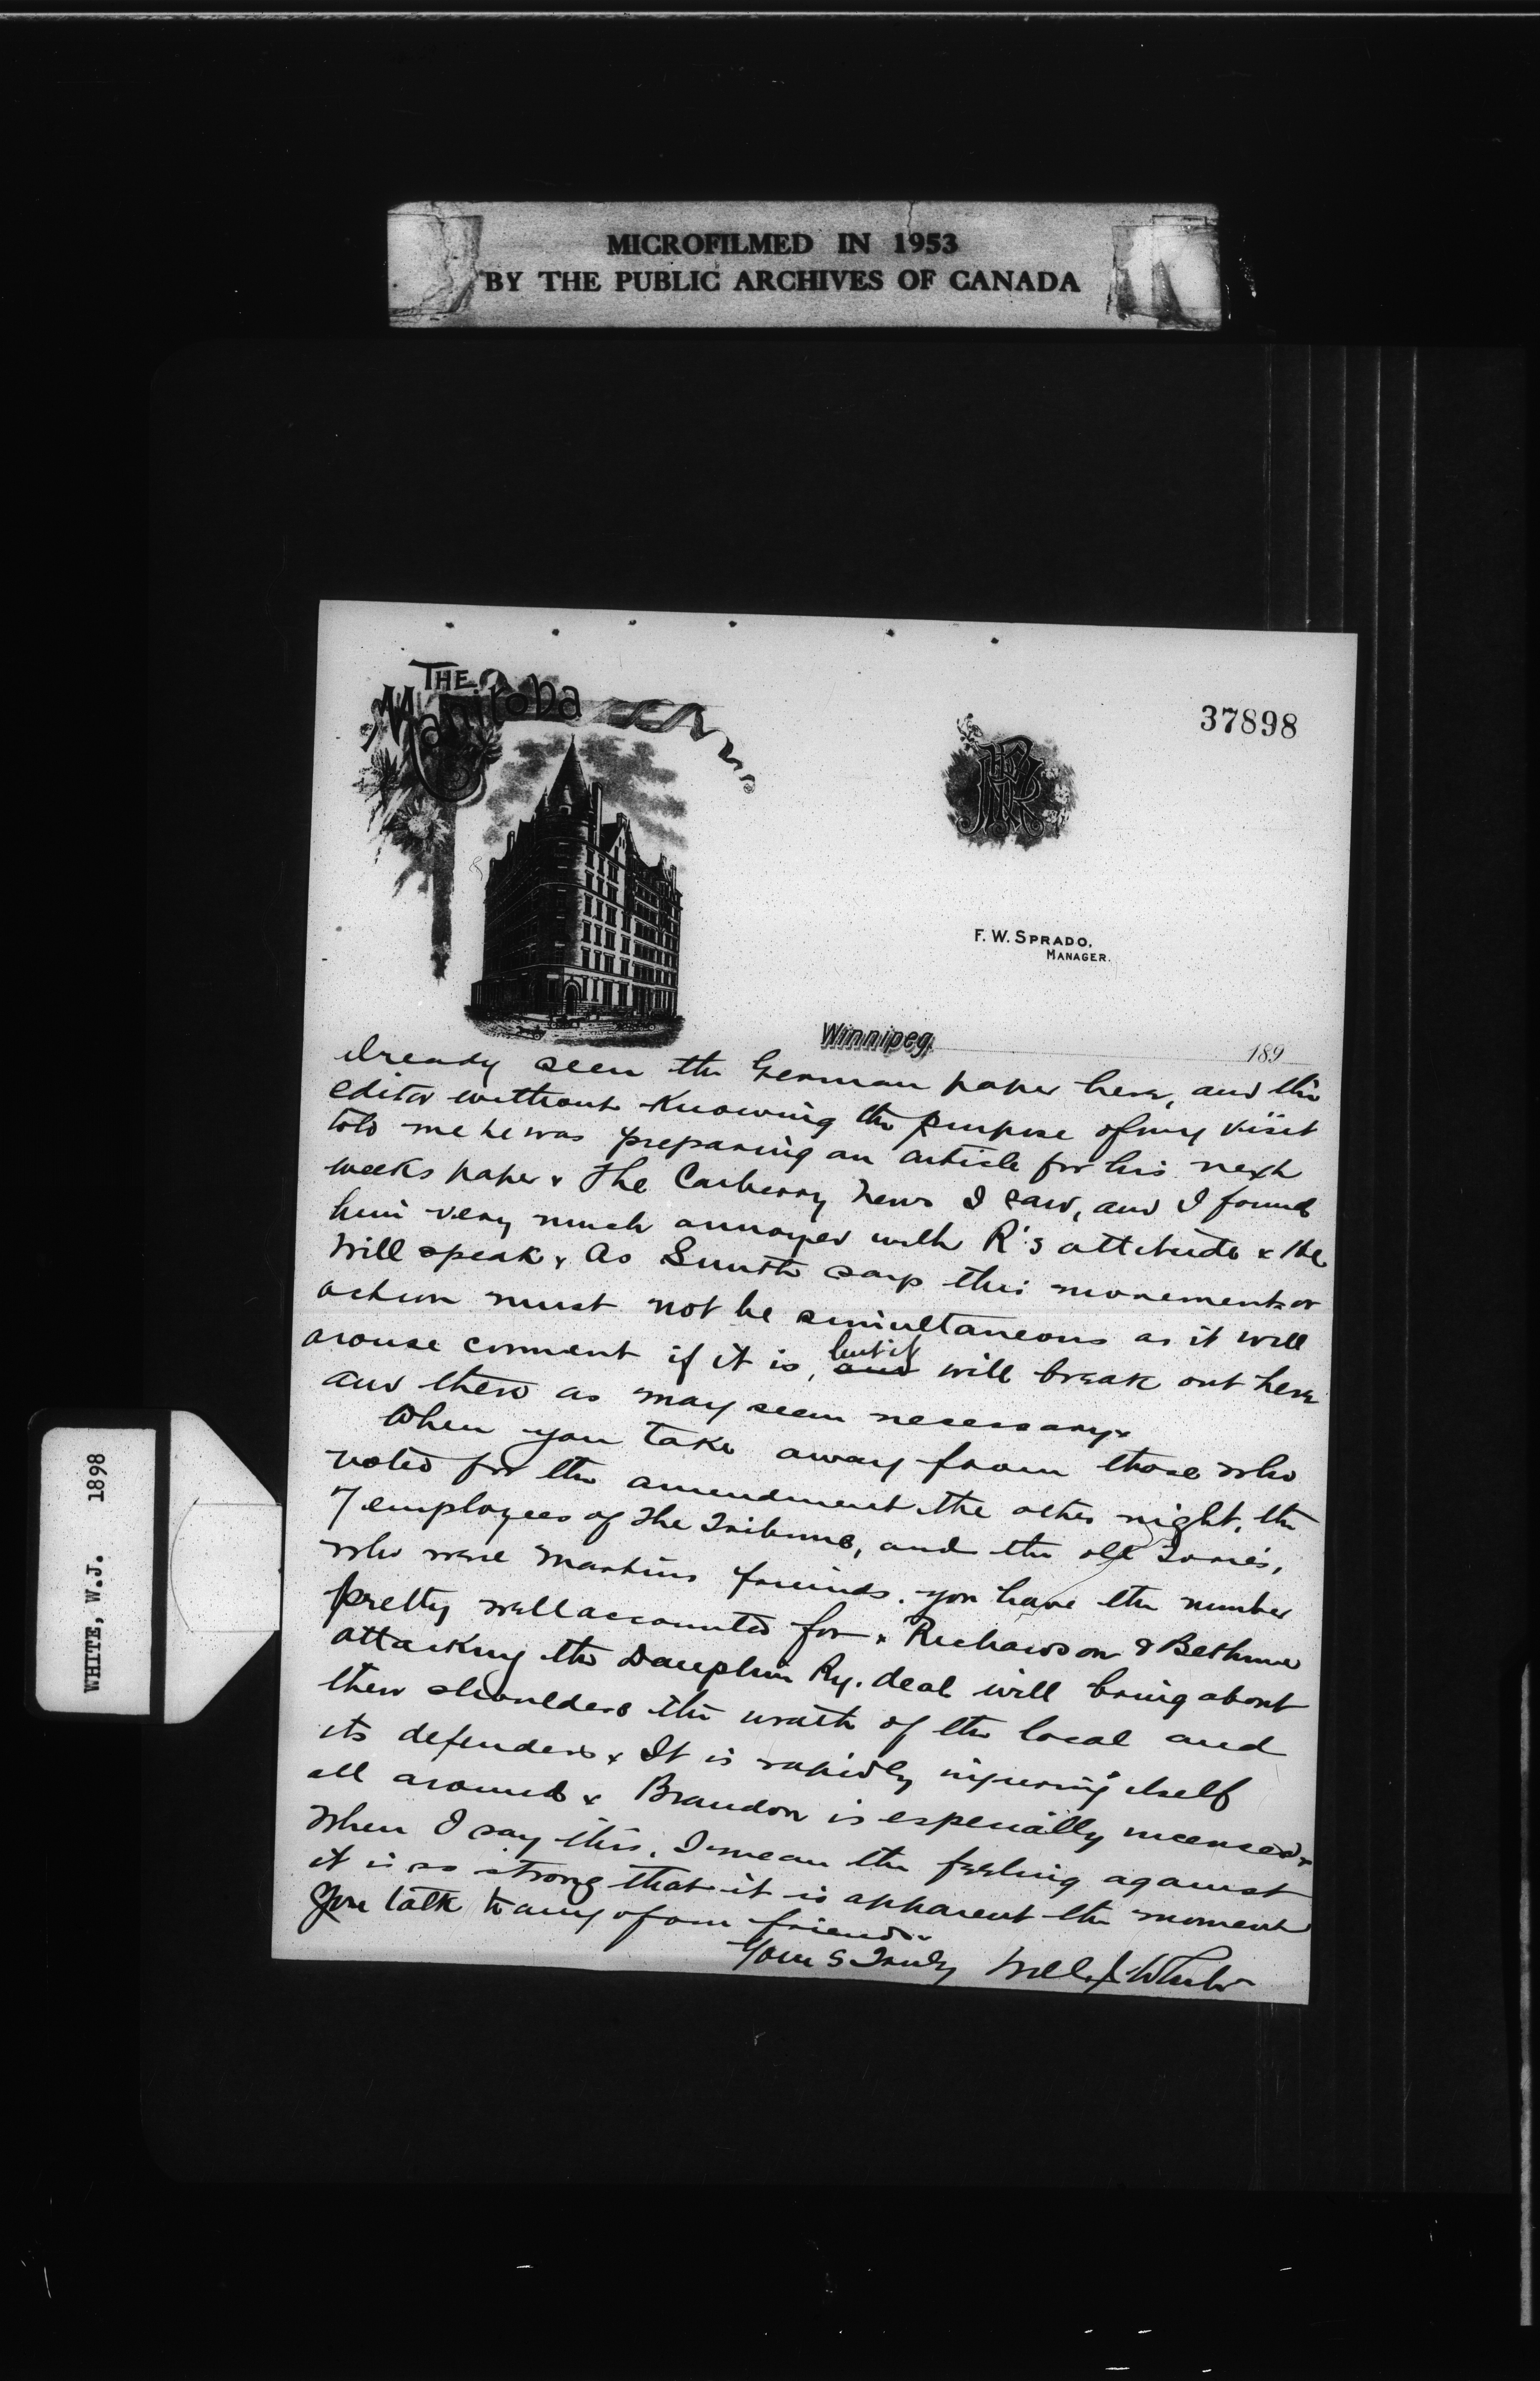 MICROFILMED IN 1953
BY THE PUBLIC ARCHIVES OF CANADA
THE
Manitoba
37898
F. W. SPRADO,
MANAGER.
Winnipeg, 189
already seen the German paper here, and the
editor without knowing the purpose of my visit
told me he was preparing an article for his next
weeks paper x The Carberry News I saw, and I found
him very much annoyed with R's attitude x He
will speak x As Smith says this movement or
action must not be simultaneous as it will
arouse comment if it is, but it and will break out here
and there as may seem necessary x
When you take away from those who
voted for the amendment the other night, the
7 employees of The Tribune, and the old Tories,
who were Martins friends, you have the number
pretty well accounted for x Richardson & Bethune
attacking the Dauphin Ry. deal will bring about
their shoulders the wrath of the local and
its defenders x It is rapidly injuring itself
all around x Brandon is especially incensed x
When I say this, I mean the feeling against
it is so strong that it is apparent the moment
you talk to any of our friends x
Yours Truly Will. J. White
WHITE, W.J. 1898